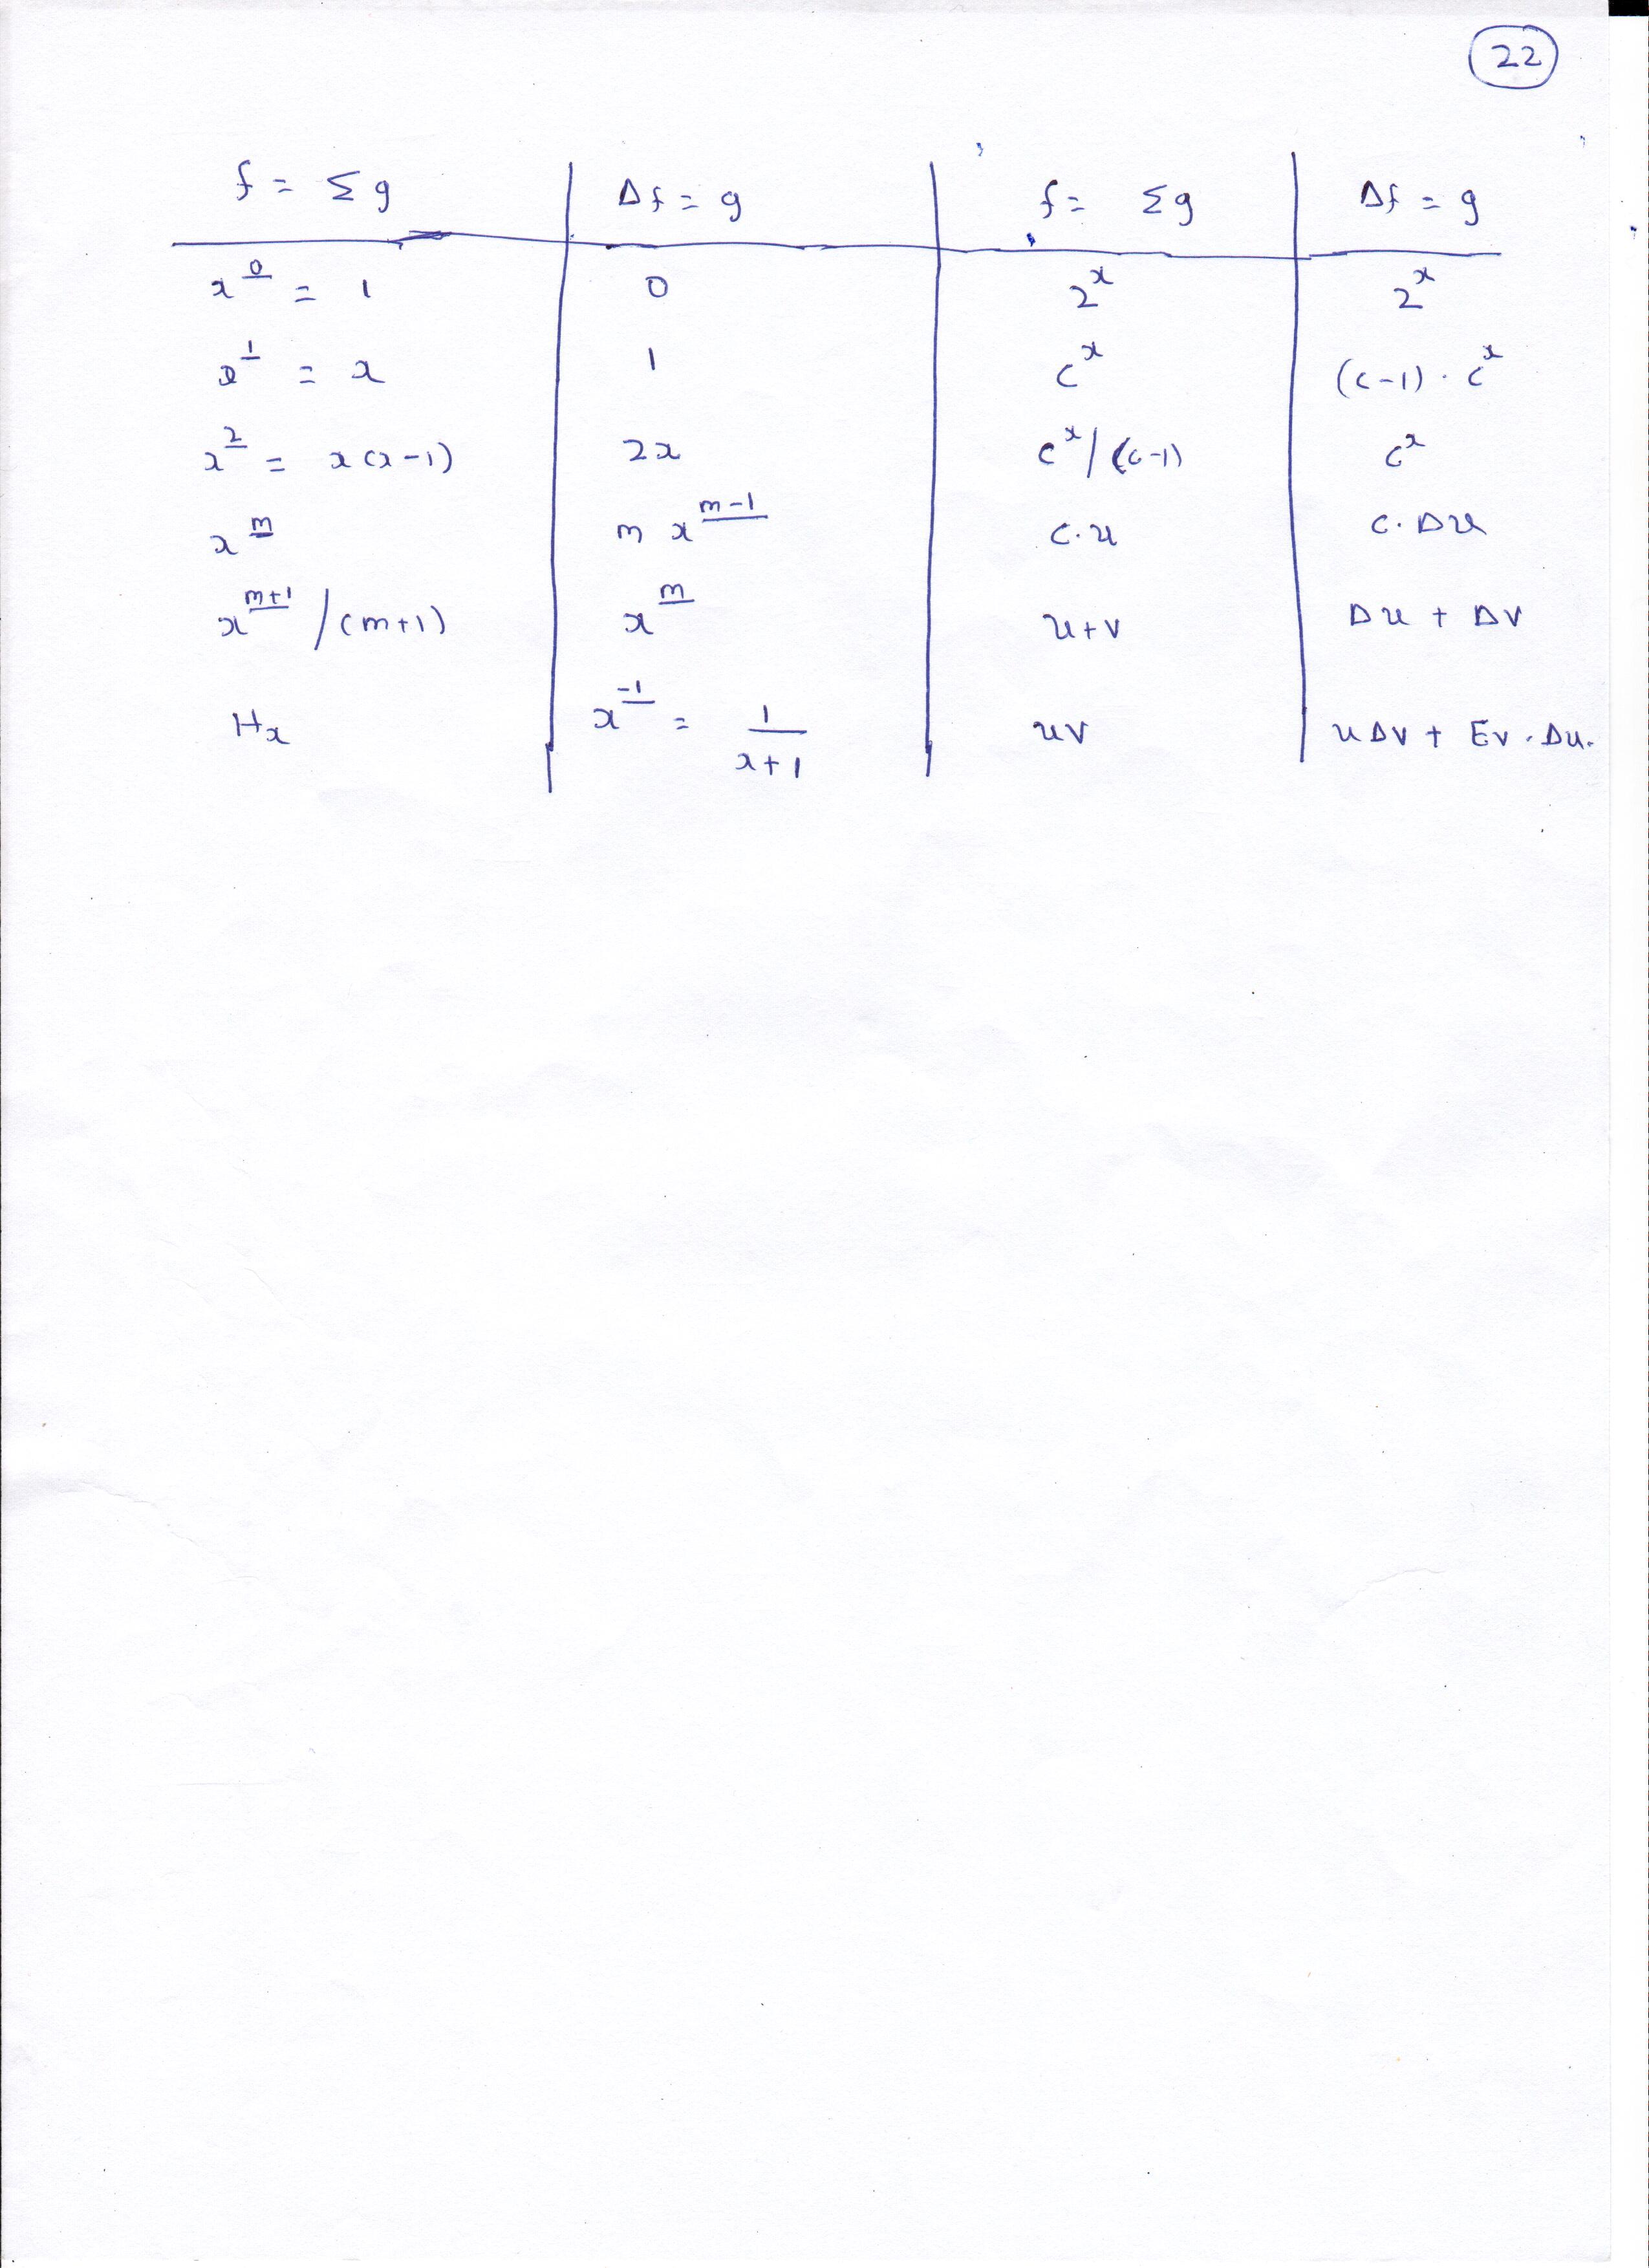 22
f = Σg | Δf = g | f = Σg | Δf = g
x^{\underline{0}} = 1 | 0 | 2^x | 2^x
x^{\underline{1}} = x | 1 | c^x | (c-1) · c^x
x^{\underline{2}} = x(x-1) | 2x | c^x/(c-1) | c^x
x^{\underline{m}} | m x^{\underline{m-1}} | c·u | c·Δu
x^{\underline{m+1}}/(m+1) | x^{\underline{m}} | u+v | Δu + Δv
H_x | x^{\underline{-1}} = \frac{1}{x+1} | uv | uΔv + Ev·Δu.